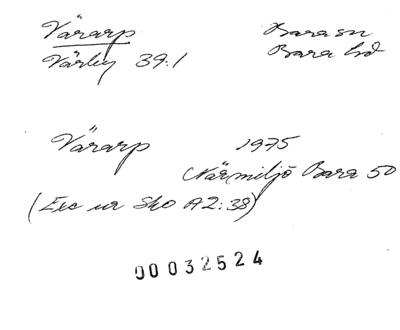 Värarp Bara sn
Värby 39:1 Bara hd
Värarp 1975
Närmiljö Bara 50
(Exc ur Sko A2:38)
00032524